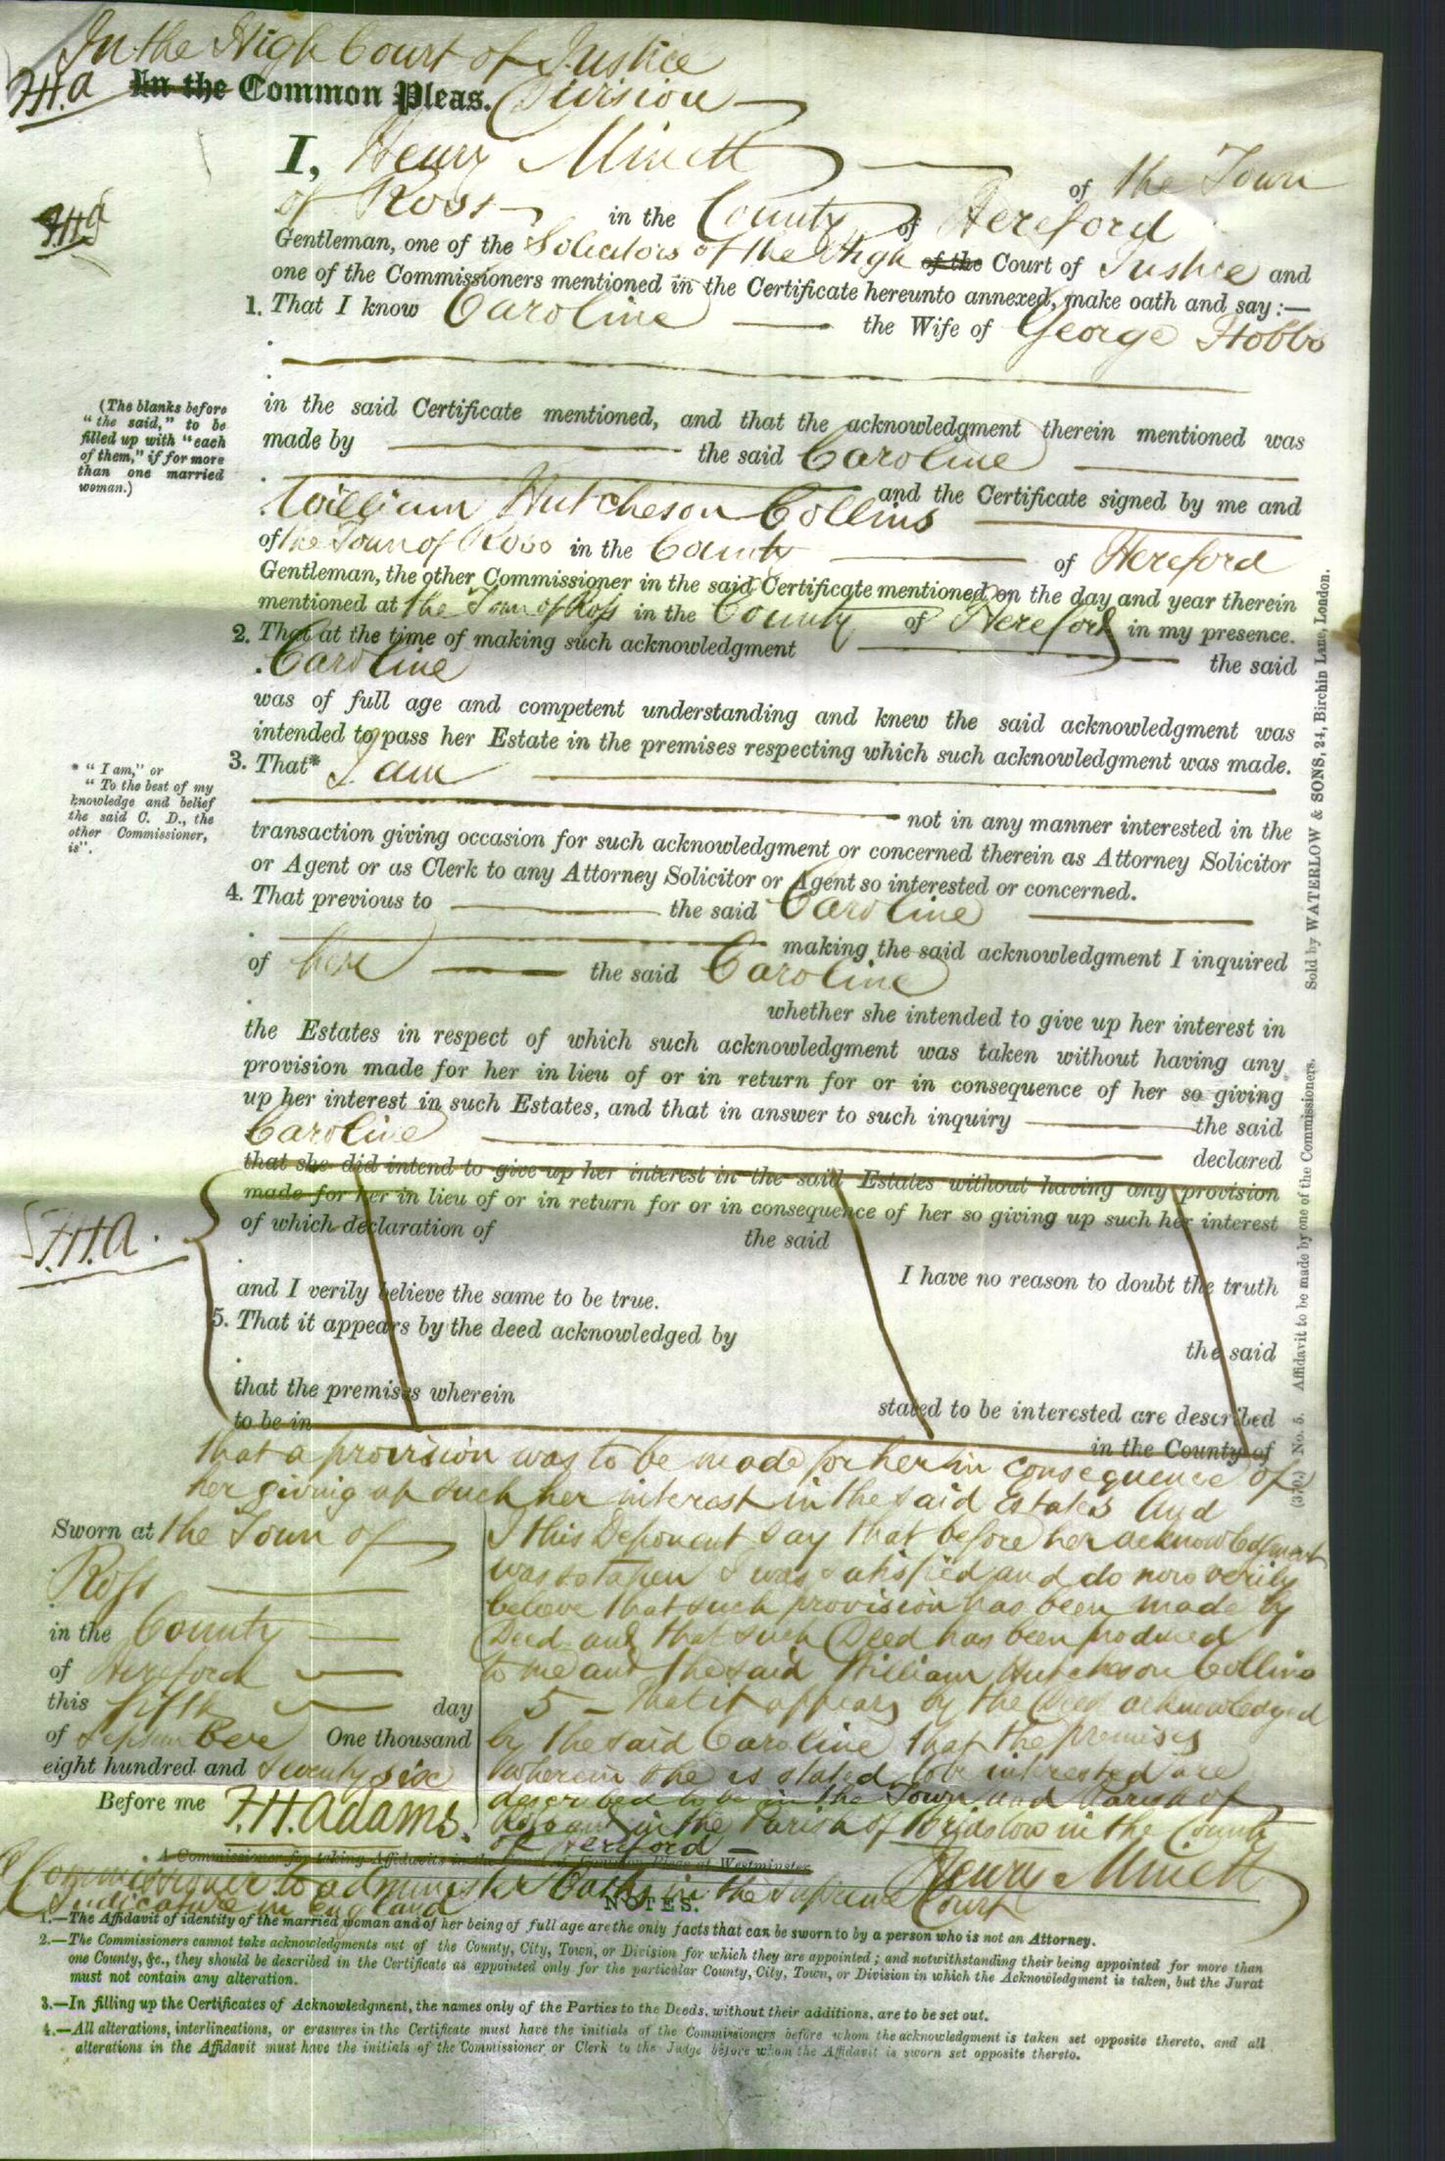 In the High Court of Justice
F.H.A In the Common Pleas. Division
I, Henry Minett of the Town
of Ross in the County of Hereford
F.H.A
Gentleman, one of the Solicitors of the High of the Court of Justice and
one of the Commissioners mentioned in the Certificate hereunto annexed, make oath and say:—
1. That I know Caroline the Wife of George Hobbs
(The blanks before
"the said," to be
filled up with "each
of them," if for more
than one married
woman.)
in the said Certificate mentioned, and that the acknowledgment therein mentioned was
made by the said Caroline
and the Certificate signed by me and
William Hutcheson Collins
of the Town of Ross in the County of Hereford
Gentleman, the other Commissioner in the said Certificate mentioned, on the day and year therein
mentioned at the Town of Ross in the County of Hereford in my presence.
2. That at the time of making such acknowledgment the said
Caroline
was of full age and competent understanding and knew the said acknowledgment was
intended to pass her Estate in the premises respecting which such acknowledgment was made.
3. That* I am
* "I am," or
"To the best of my
knowledge and belief
the said C. D., the
other Commissioner,
is".
not in any manner interested in the
transaction giving occasion for such acknowledgment or concerned therein as Attorney Solicitor
or Agent or as Clerk to any Attorney Solicitor or Agent so interested or concerned.
4. That previous to the said Caroline
making the said acknowledgment I inquired
of her the said Caroline
whether she intended to give up her interest in
the Estates in respect of which such acknowledgment was taken without having any
provision made for her in lieu of or in return for or in consequence of her so giving
up her interest in such Estates, and that in answer to such inquiry the said
Caroline declared
that she did intend to give up her interest in the said Estates without having any provision
made for her in lieu of or in return for or in consequence of her so giving up such her interest
F.H.A.
of which declaration of the said
I have no reason to doubt the truth
and I verily believe the same to be true.
5. That it appears by the deed acknowledged by
the said
that the premises wherein
stated to be interested are described
to be in in the County of
that a provision was to be made for her in consequence of
her giving up such her interest in the said Estates And
I this Deponent say that before her acknowledgment
was so taken I was satisfied and do now verily
believe that such provision has been made by
Deed and that such Deed has been produced
to me and the said William Hutcheson Collins
5 – That it appears by the Deed acknowledged
by the said Caroline that the premises
wherein she is stated to be interested are
described to be in the Town and Parish of
Ross and in the Parish of Bridstow in the County
of Hereford –
Henry Minett
Sworn at the Town of
Ross
in the County
of Hereford
this fifth day
of September One thousand
eight hundred and seventy six
Before me F.H. Adams.
A Commissioner for taking Affidavits in the Court of Common Pleas at Westminster
A Commissioner to administer Oaths in the Supreme Court
of Judicature in England
NOTES.
1.—The Affidavit of identity of the married woman and of her being of full age are the only facts that can be sworn to by a person who is not an Attorney.
2.—The Commissioners cannot take acknowledgments out of the County, City, Town, or Division for which they are appointed; and notwithstanding their being appointed for more than
one County, &c., they should be described in the Certificate as appointed only for the particular County, City, Town, or Division in which the Acknowledgment is taken, but the Jurat
must not contain any alteration.
3.—In filling up the Certificates of Acknowledgment, the names only of the Parties to the Deeds, without their additions, are to be set out.
4.—All alterations, interlineations, or erasures in the Certificate must have the initials of the Commissioners before whom the acknowledgment is taken set opposite thereto, and all
alterations in the Affidavit must have the initials of the Commissioner or Clerk to the Judge before whom the Affidavit is sworn set opposite thereto.
(370.) No. 5. Affidavit to be made by one of the Commissioners. Sold by WATERLOW & SONS, 24, Birchin Lane, London.